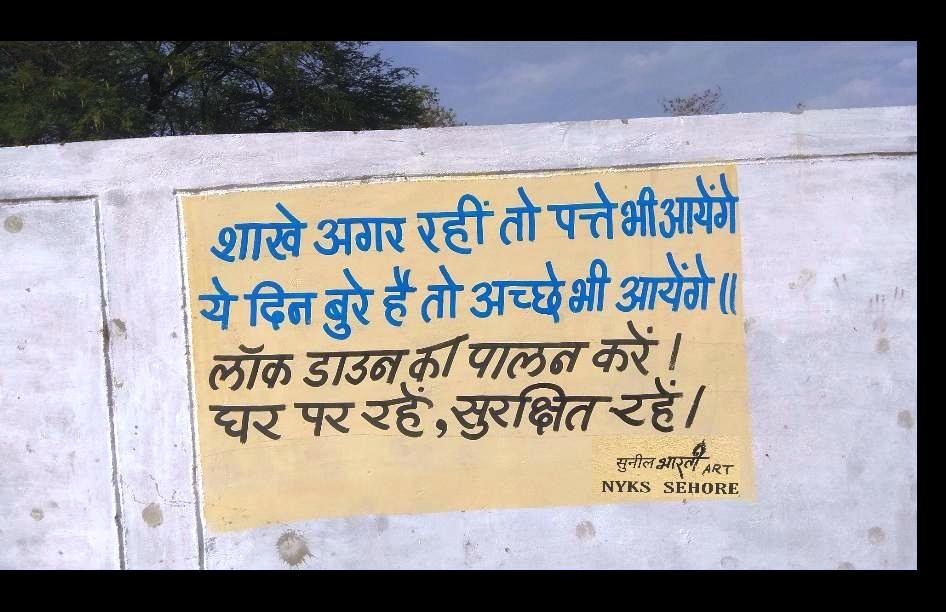 शाखे अगर रहीं तो पत्ते भी आयेंगे
ये दिन बुरे है तो अच्छे भी आयेंगे॥
लॉक डाउन की पालन करें।
घर पर रहें, सुरक्षित रहें।
सुनील भारती ART
NYKS SEHORE